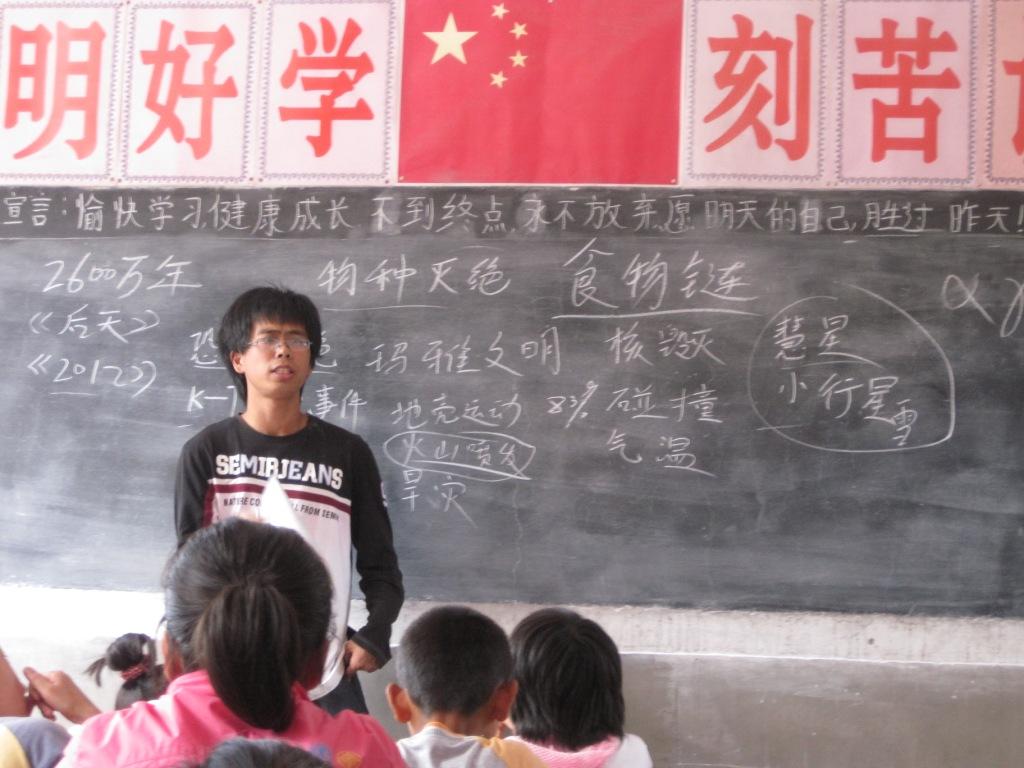 明好学 刻苦
宣言：愉快学习,健康成长 不到终点,永不放弃,愿明天的自己,胜过昨天!
2600万年 物种灭绝 食物链
《后天》 恐 玛雅文明 核毁灭 慧星
《2012》 小行星
K- 事件 地壳运动 83% 碰撞 雪
火山喷发 气温
旱灾
α γ
SEMIRJEANS